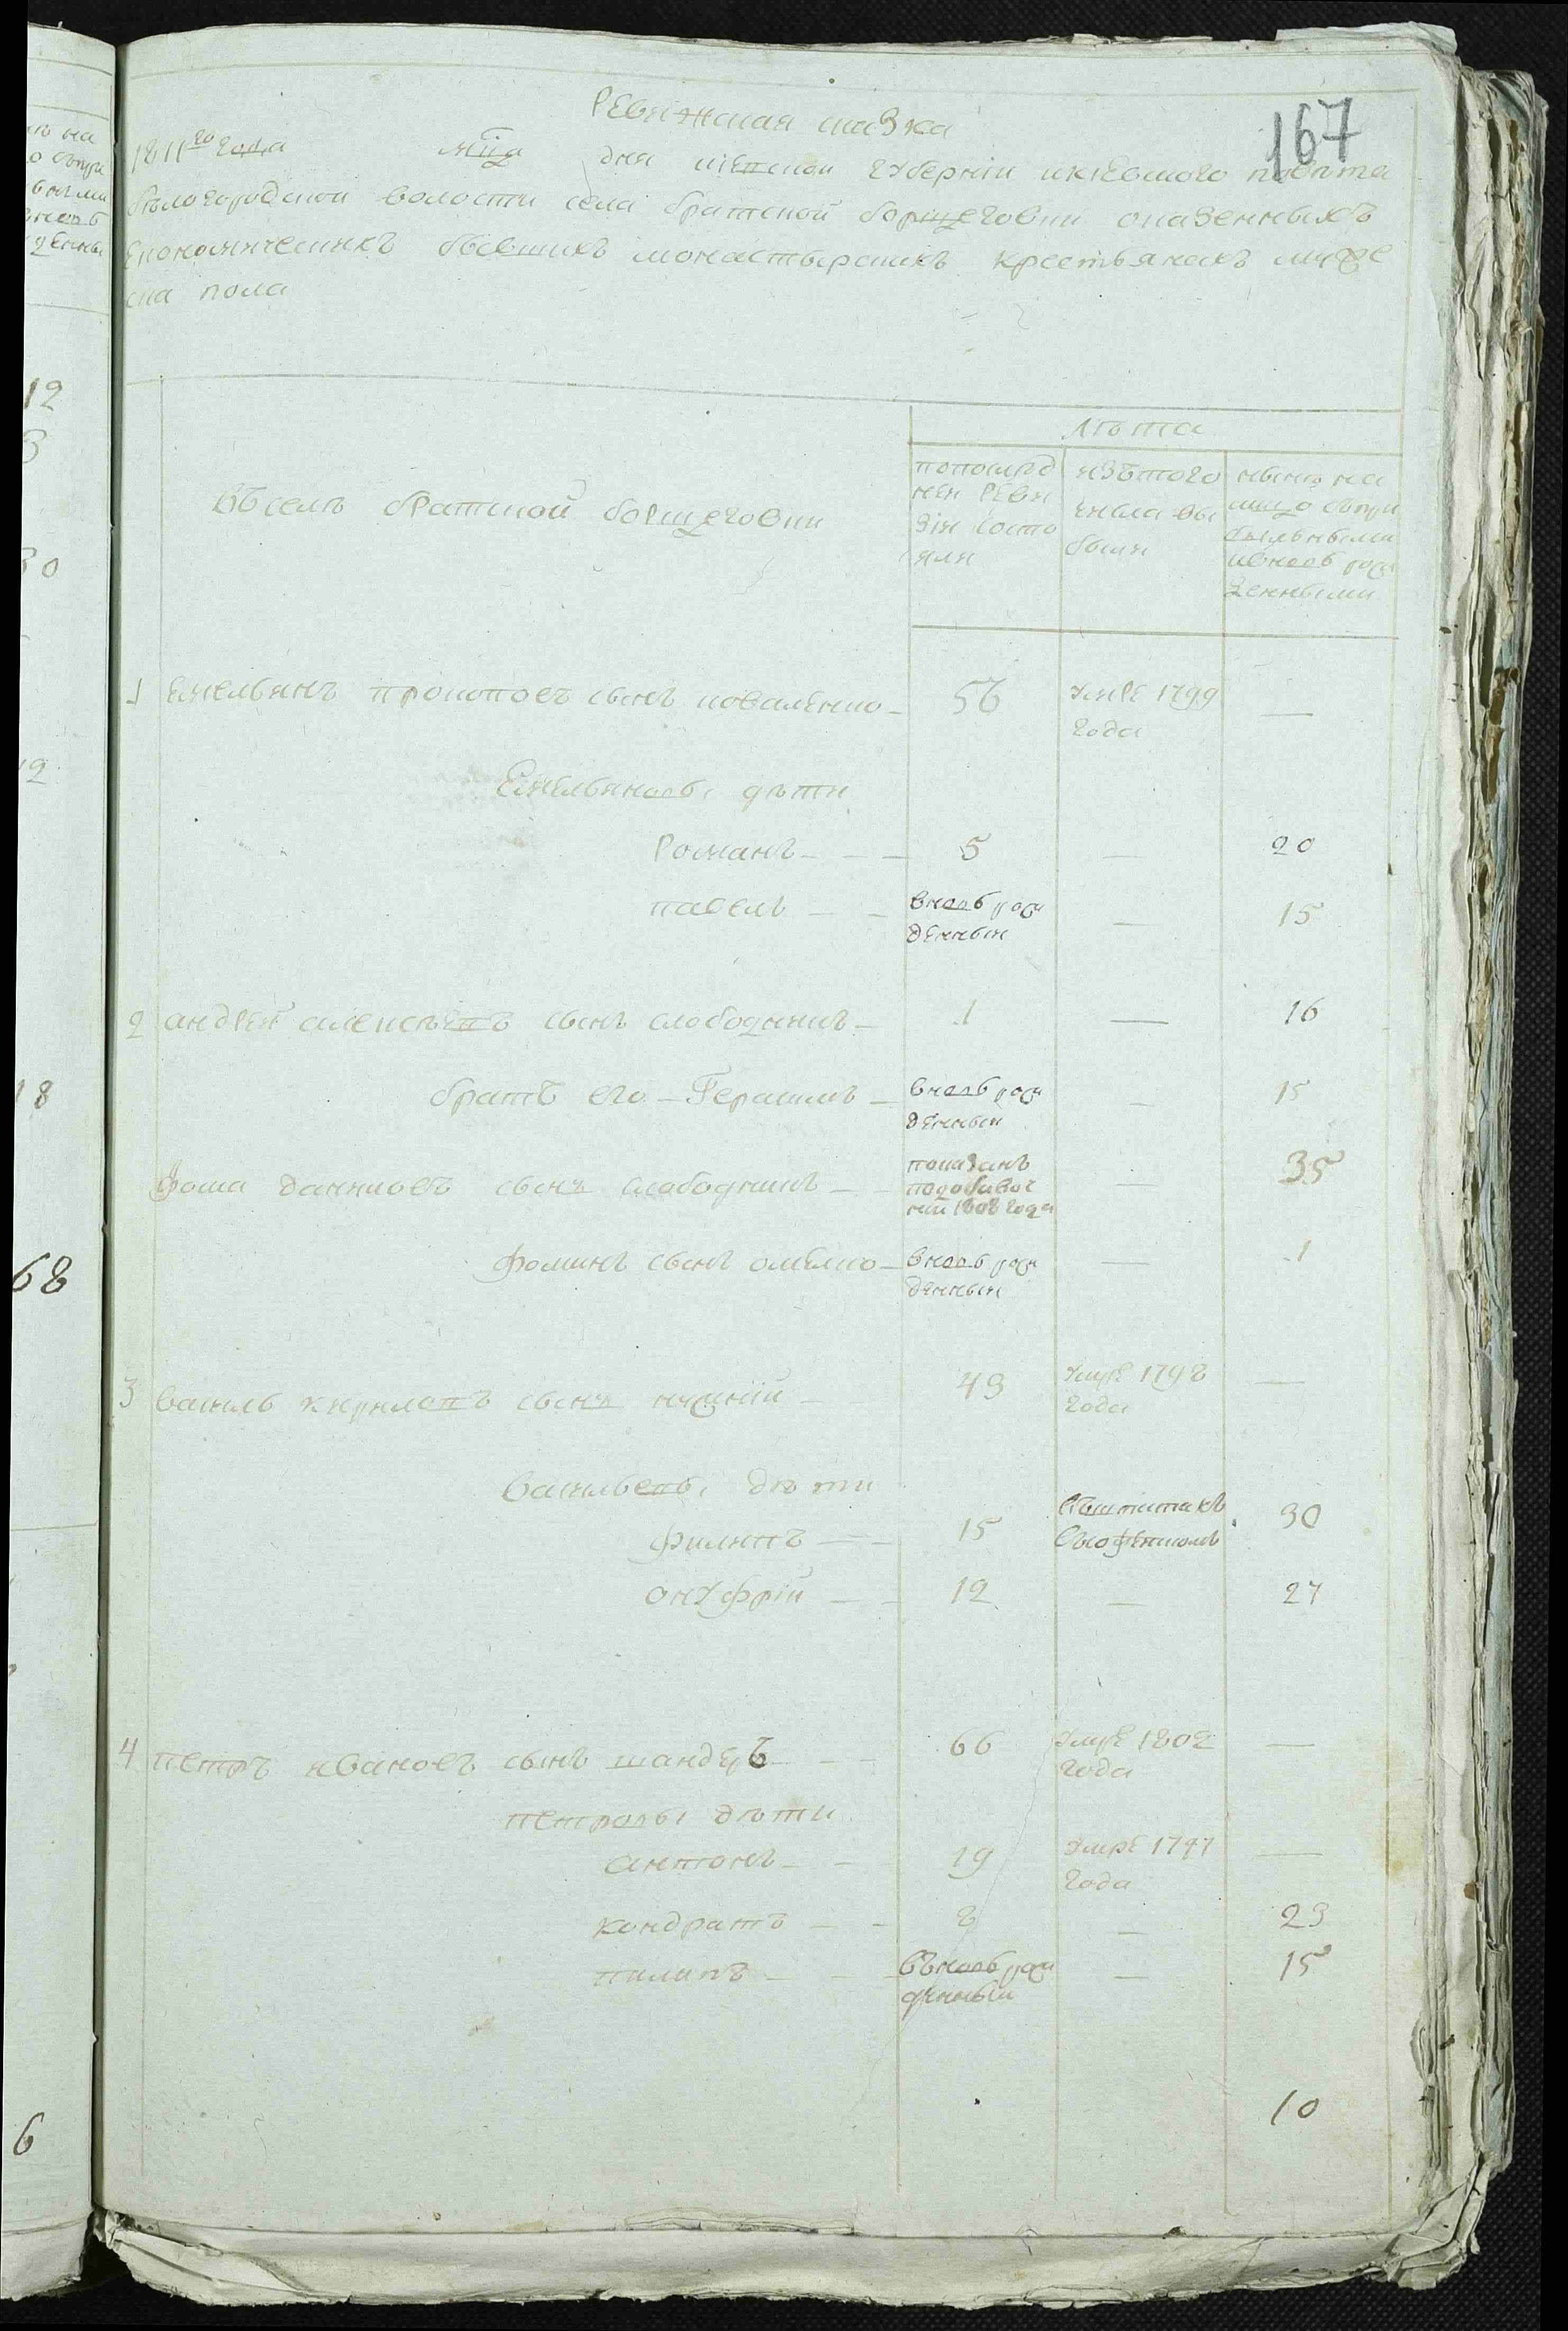 167
Ревижская сказка
1811го года мца дня кіевской губерніи и кіевского повѣта
бѣлогородской волости села братской борщеговки о казенныхъ
економическихъ бывшихъ монастырскихъ крестьянахъ муже
ска пола
лѣта
Въ селѣ братской борщеговки
по послѣд
ней реви
зіи состо
яли
изъ того
числа вы
были
нынѣ на
лицо съ при
былыми
и вновь рож
денными
1 Емельянъ прокоповъ сынъ коваленко 56 умре 1799
года —
Емельяновы дѣти
Романъ 5 — 20
павелъ вновь рож
денный — 15
2 андрей алексѣевъ сынъ слободникъ 1 — 16
братъ его Герасимъ вновь рож
денный — 15
фома даниловъ сынъ слободникъ показанъ
1808 года — 35
фоминъ сынъ омелко вновь рож
денный — 1
3 василь кириловъ сынъ 49 умре 1798
года —
васильевы дѣти
филипъ 15 30
онуфрій 12 — 27
4 петръ ивановъ сынъ 66 умре 1802
года —
петровы дѣти
антонъ 19 умре 1797
года —
кондратъ 8 — 23
пилипъ въновь рож
денный — 15
10
12
3
30
18
68
6